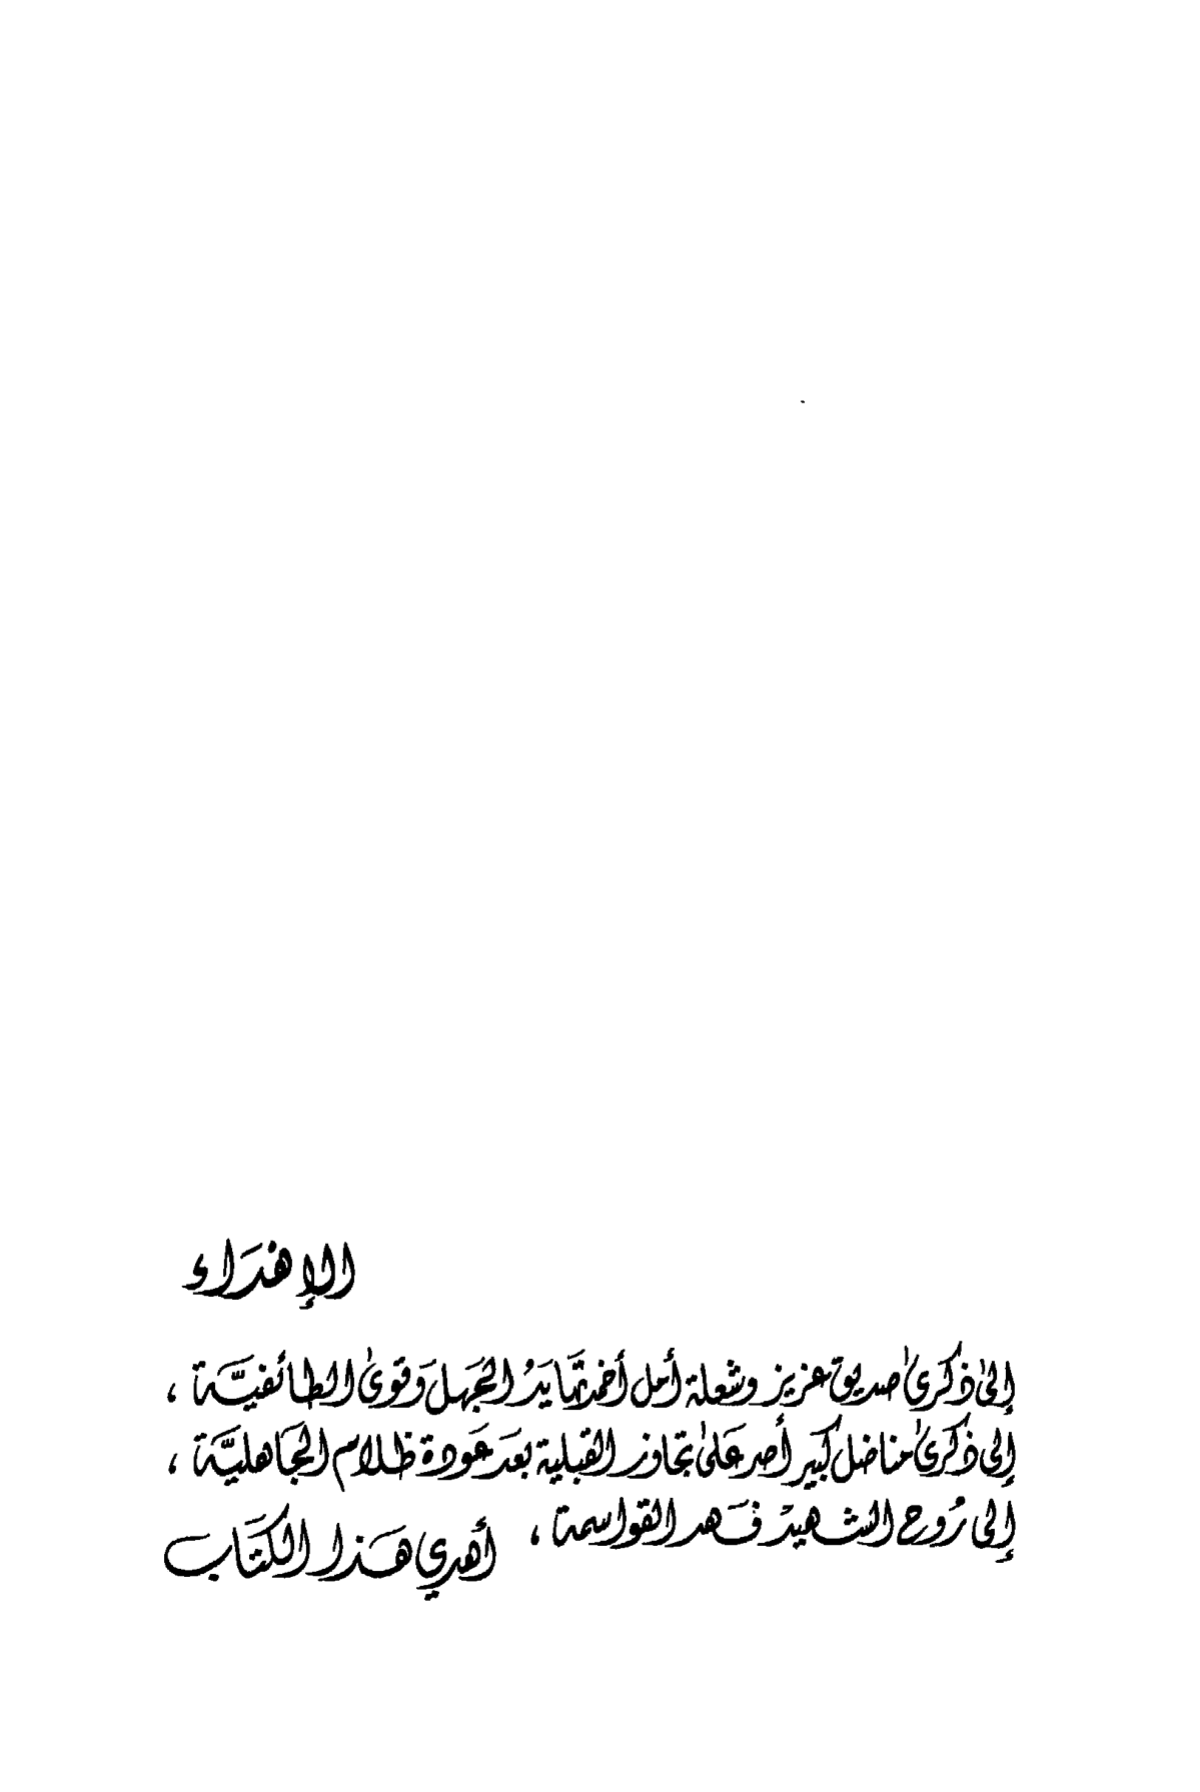 الإهدَاء
إلىٰ ذكرىٰ صديق عزيز وشعلة أمل أخمدتهَا يَدُ الجَهل وَقوىٰ الطائفيَّة ،
إلى ذكرىٰ مناضل كبير أصر عَلىٰ تجاوز القبلية بعدَ عَودة ظلام الجَاهليَّة ،
إلى رُوح الشهيدْ فَهد القواسمة ، أهدي هَذا الكتَاب